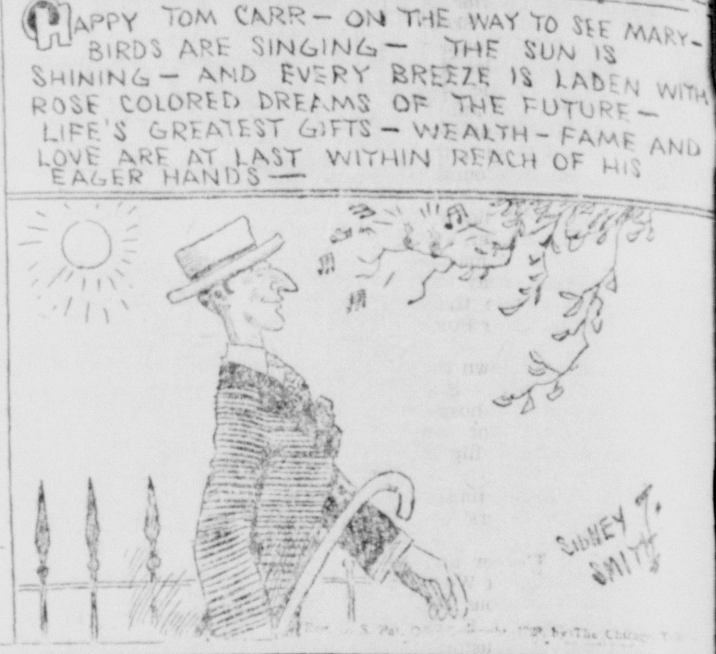 HAPPY TOM CARR — ON THE WAY TO SEE MARY —
BIRDS ARE SINGING — THE SUN IS
SHINING — AND EVERY BREEZE IS LADEN WITH
ROSE COLORED DREAMS OF THE FUTURE —
LIFE'S GREATEST GIFTS — WEALTH — FAME AND
LOVE ARE AT LAST WITHIN REACH OF HIS
EAGER HANDS —
SIDNEY T.
SMITH
by The Chicago